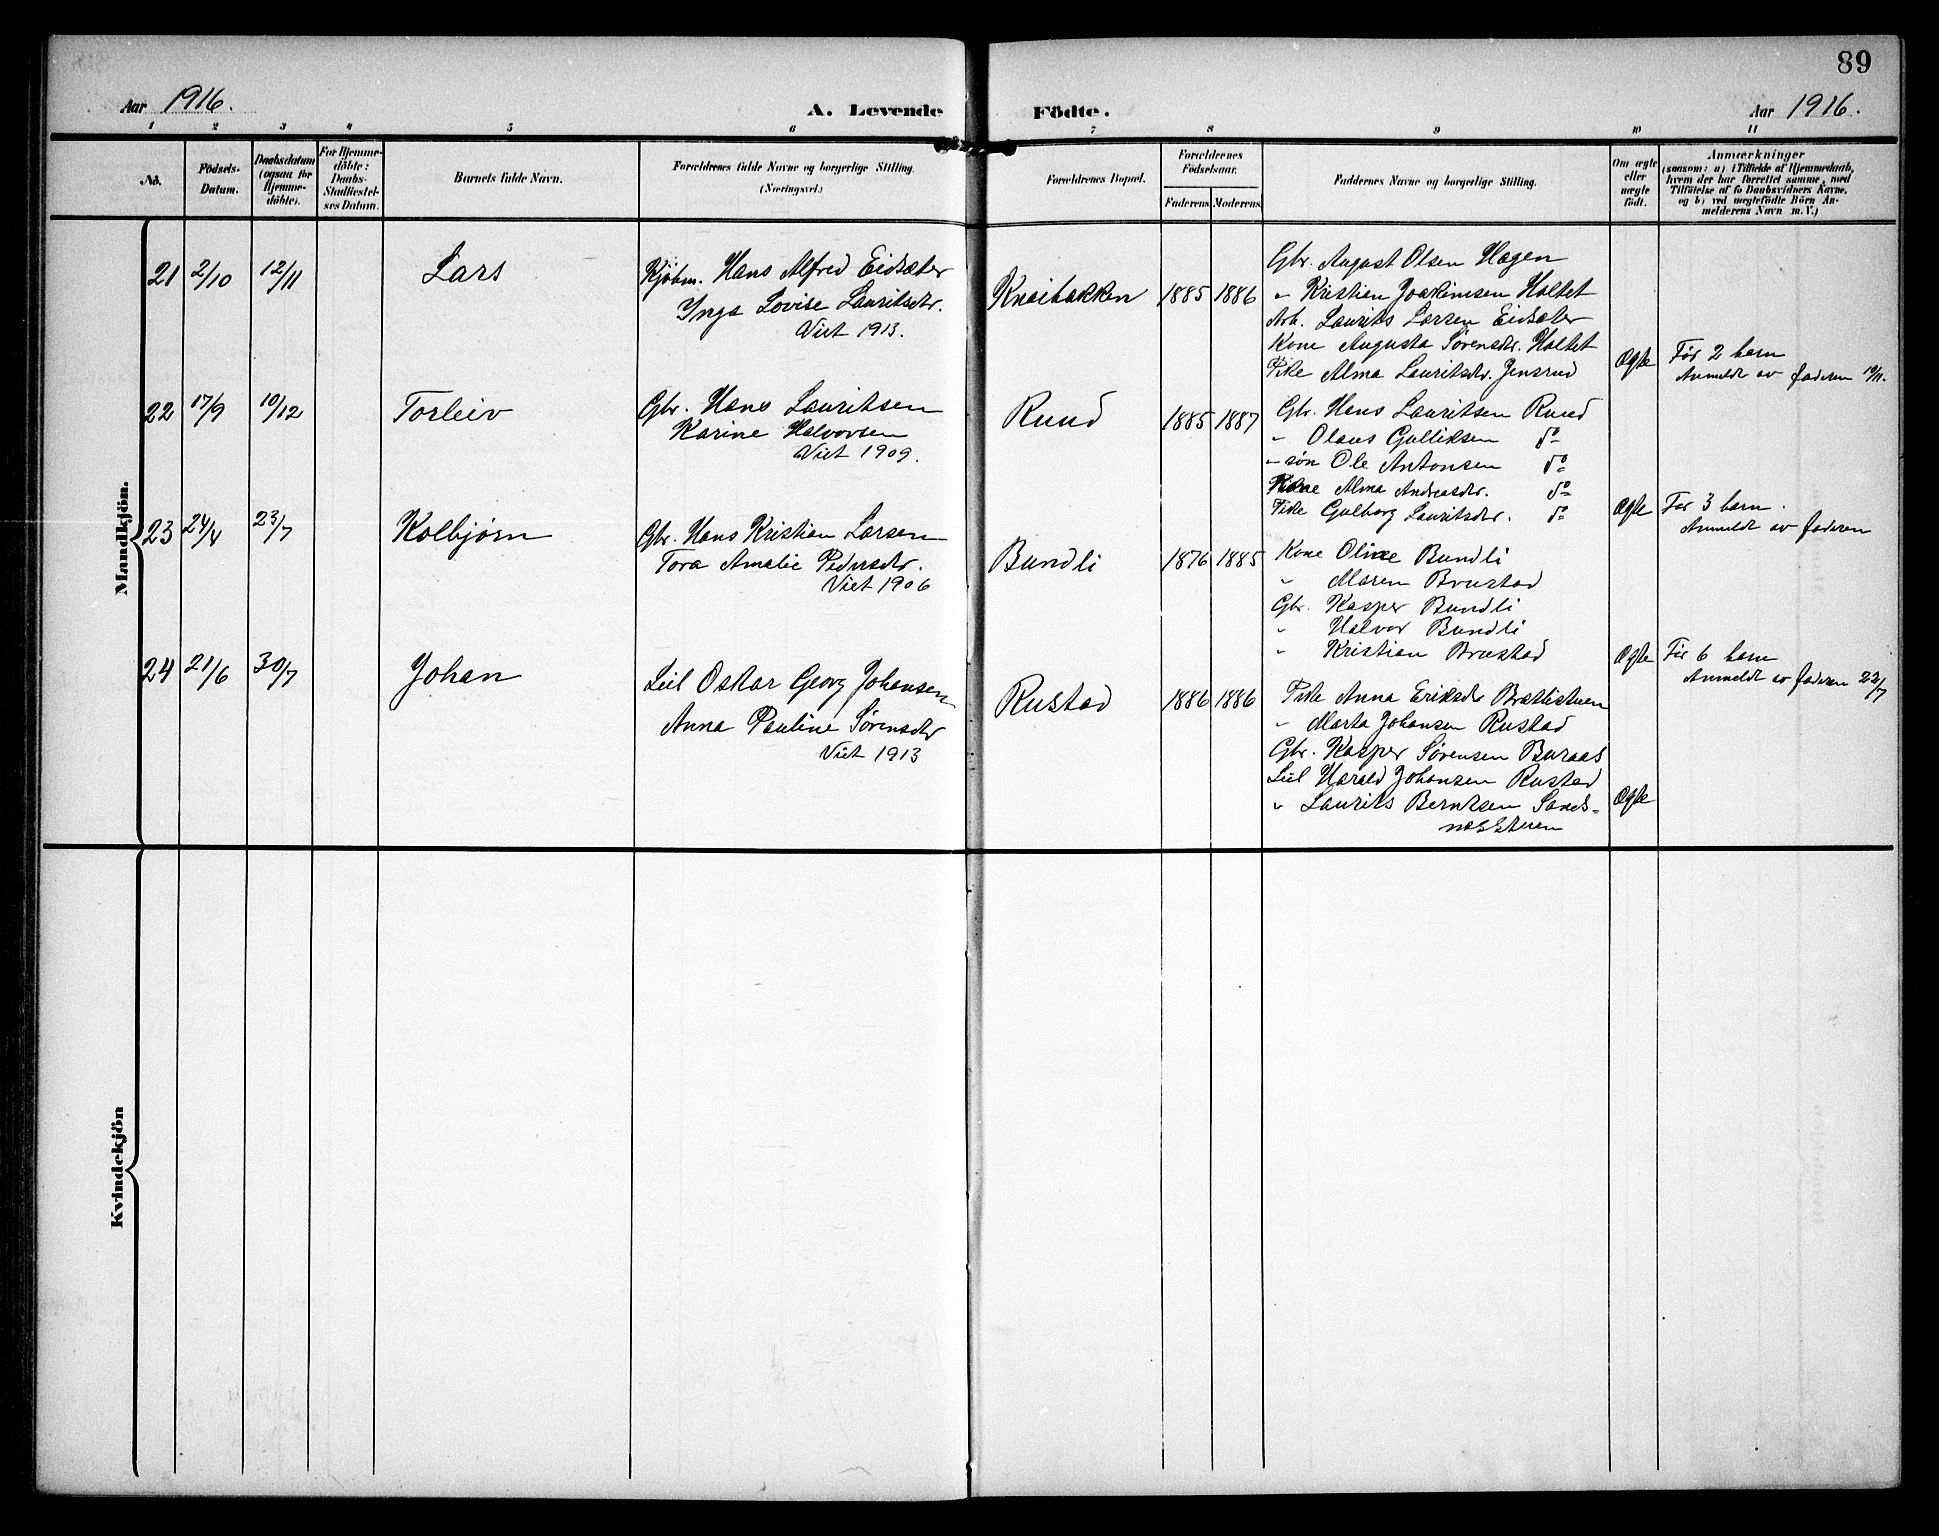 89
Aar 1916.
A. Levende Födte.
Aar 1916.
1 2 3 4 5 6 7 8 9 10 11
No.
Födsels-
Datum.
Daabsdatum
(ogsaa for
Hjemme-
döbte).
For Hjemme-
döbte:
Daabs-
Stadfæstel-
ses Datum.
Barnets fulde Navn.
Forældrenes fulde Navne og borgerlige Stilling.
(Næringsvei.)
Forældrenes Bopæl.
Forældrenes
Födselsaar.
Faderens Moderens
Faddernes Navne og borgerlige Stilling.
Om ægte
eller
uægte
födt.
Anmærkninger
(saasom: a) i Tilfælde af Hjemmedaab,
hvem der har forrettet samme, med
Tilföielse af to Daabsvidners Navne.
og b) ved uægtefödte Börn An-
melderens Navn m. V.)
Mandkjön.
21 2/10 12/11 Lars
Kjøbm. Hans Alfred Eidsæter
Inga Lovise Lauritsdtr.
Viet 1913.
Knaibakken 1885 1886
Gbr. August Olsen Hagen
" Kristian Joakimsen Holtet
Arb. Laurits Larsen Eidsæter
Kone Augusta Sørensdtr. Holtet
Pike Alma Lauritsdtr. Jensrud
Ægte
Før 2 barn
Anmeldt av faderen 10/11.
22 17/9 10/12 Torleiv
Gbr. Hans Lauritsen
Karine Halvorsen
Viet 1909.
Ruud 1885 1887
Gbr. Hans Lauritsen Ruud
" Olaus Gulliksen do
" søn Ole Antonsen do
Kone Alma Andreasdtr. do
Pike Gulborg Lauritsdtr. do
Ægte
Før 3 barn.
Anmeldt av faderen
23 24/4 23/7 Kolbjørn
Gbr. Hans Kristian Larsen
Tora Amalie Pedersdtr.
Viet 1906
Bundli 1876 1885
Kone Oline Bundli
" Maren Brustad
Gbr. Kasper Bundli
" Halvor Bundli
" Kristian Brustad
Ægte
Før 6 barn
Anmeldt av faderen 22/7
24 21/6 30/7 Johan
Leil Oskar Georg Johansen
Anna Pauline Sørensdtr
Viet 1913
Rustad 1886 1886
Pike Anna Eriksdtr Brætlistuen
" Marta Johansen Rustad
Gbr. Kasper Sørensen Buraas
Leil Harald Johansen Rustad
" Laurits Berntsen Sands-
næsstuen
Ægte
Kvindekjön